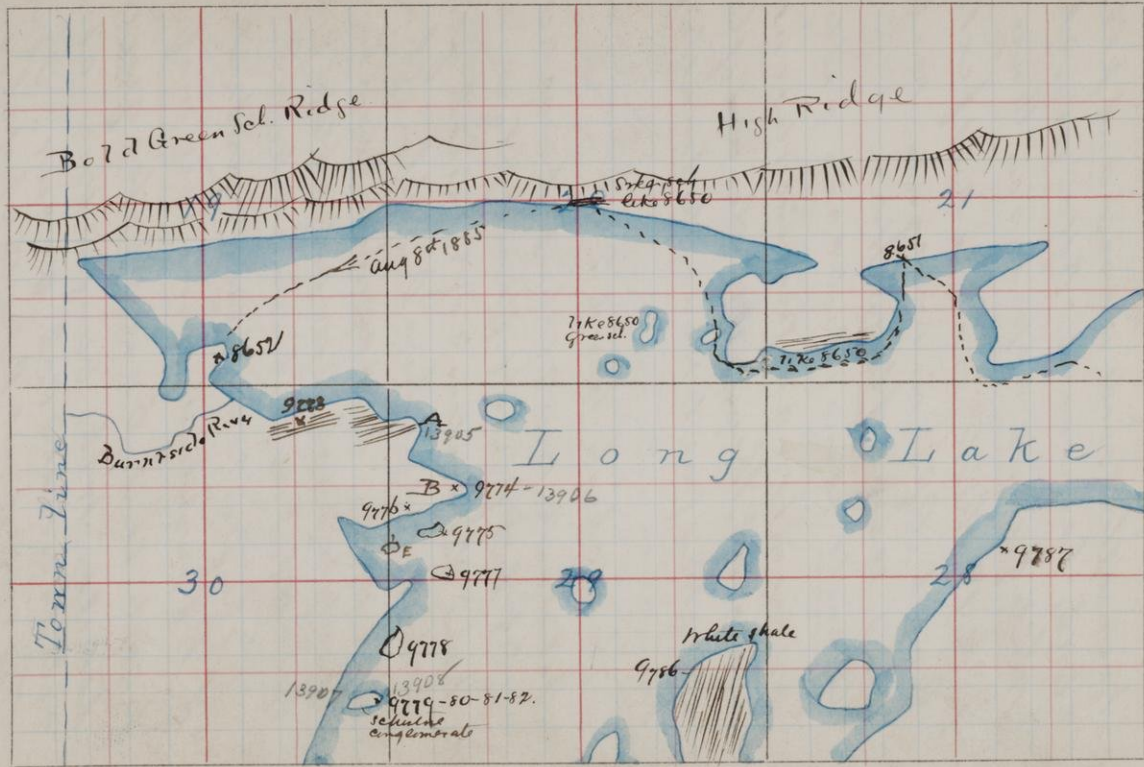 Bold Green Sch. Ridge
High Ridge
19
20
21
like 8650
Aug 8th 1885
8651
like 8650
Green sch.
like 8650
8652
Burntside River
9773
A
13905
Long Lake
B × 9774 - 13906
9776 ×
9775
E
9777
Town Line
30
29
28
× 9787
9778
White shale
9786
13907
13908
9779-80-81-82.
conglomerate